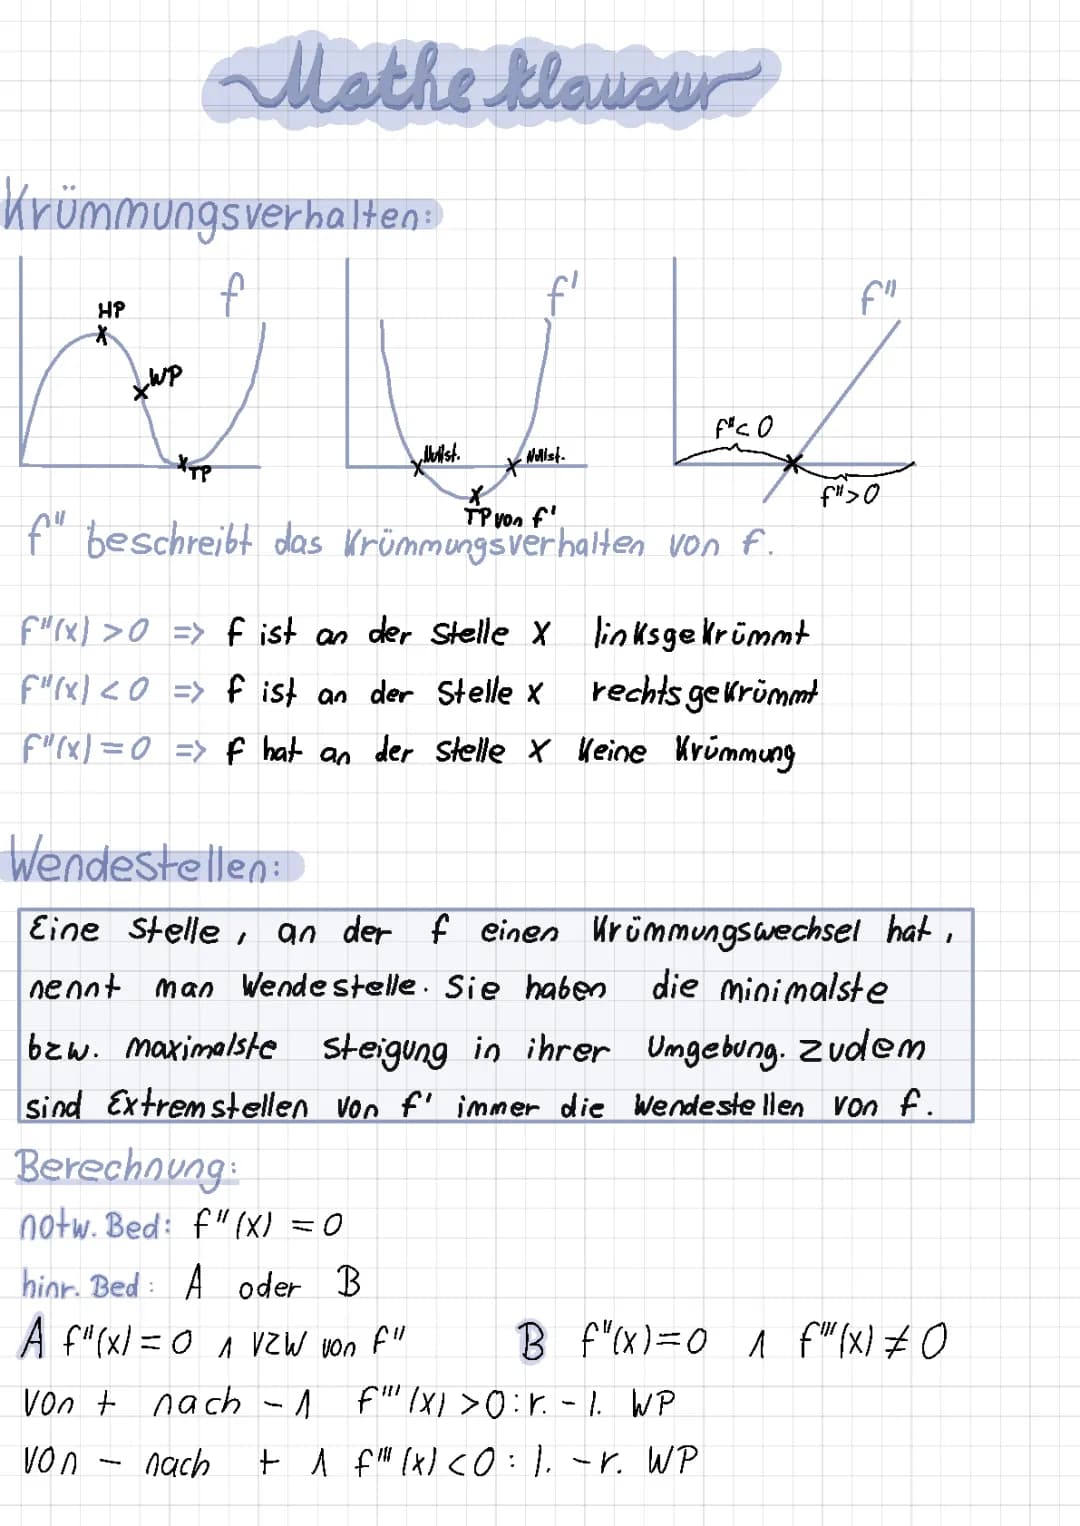 Mathe Klausur
Krümmungsverhalten:
f
HP
WP
TP
f'
Nullst.
Nullst.
TP von f'
f"
f"< 0
f">0
f" beschreibt das Krümmungsverhalten von f.
f"(x) >0 => f ist an der Stelle x linksgekrümmt
f"(x) <0 => f ist an der Stelle x rechtsgekrümmt
f"(x) = 0 => f hat an der Stelle x keine Krümmung
Wendestellen:
Eine Stelle, an der f einen Krümmungswechsel hat,
nennt man Wendestelle. Sie haben die minimalste
bzw. maximalste Steigung in ihrer Umgebung. Zudem
sind Extremstellen von f' immer die Wendestellen von f.
Berechnung:
notw. Bed: f"(x) = 0
hinr. Bed: A oder B
A f"(x) = 0 ∧ VZW von f" B f"(x)=0 ∧ f'''(x) ≠ 0
von + nach - ∧ f'''(x) >0: r. - l. WP
von - nach + ∧ f'''(x) <0: l. -r. WP